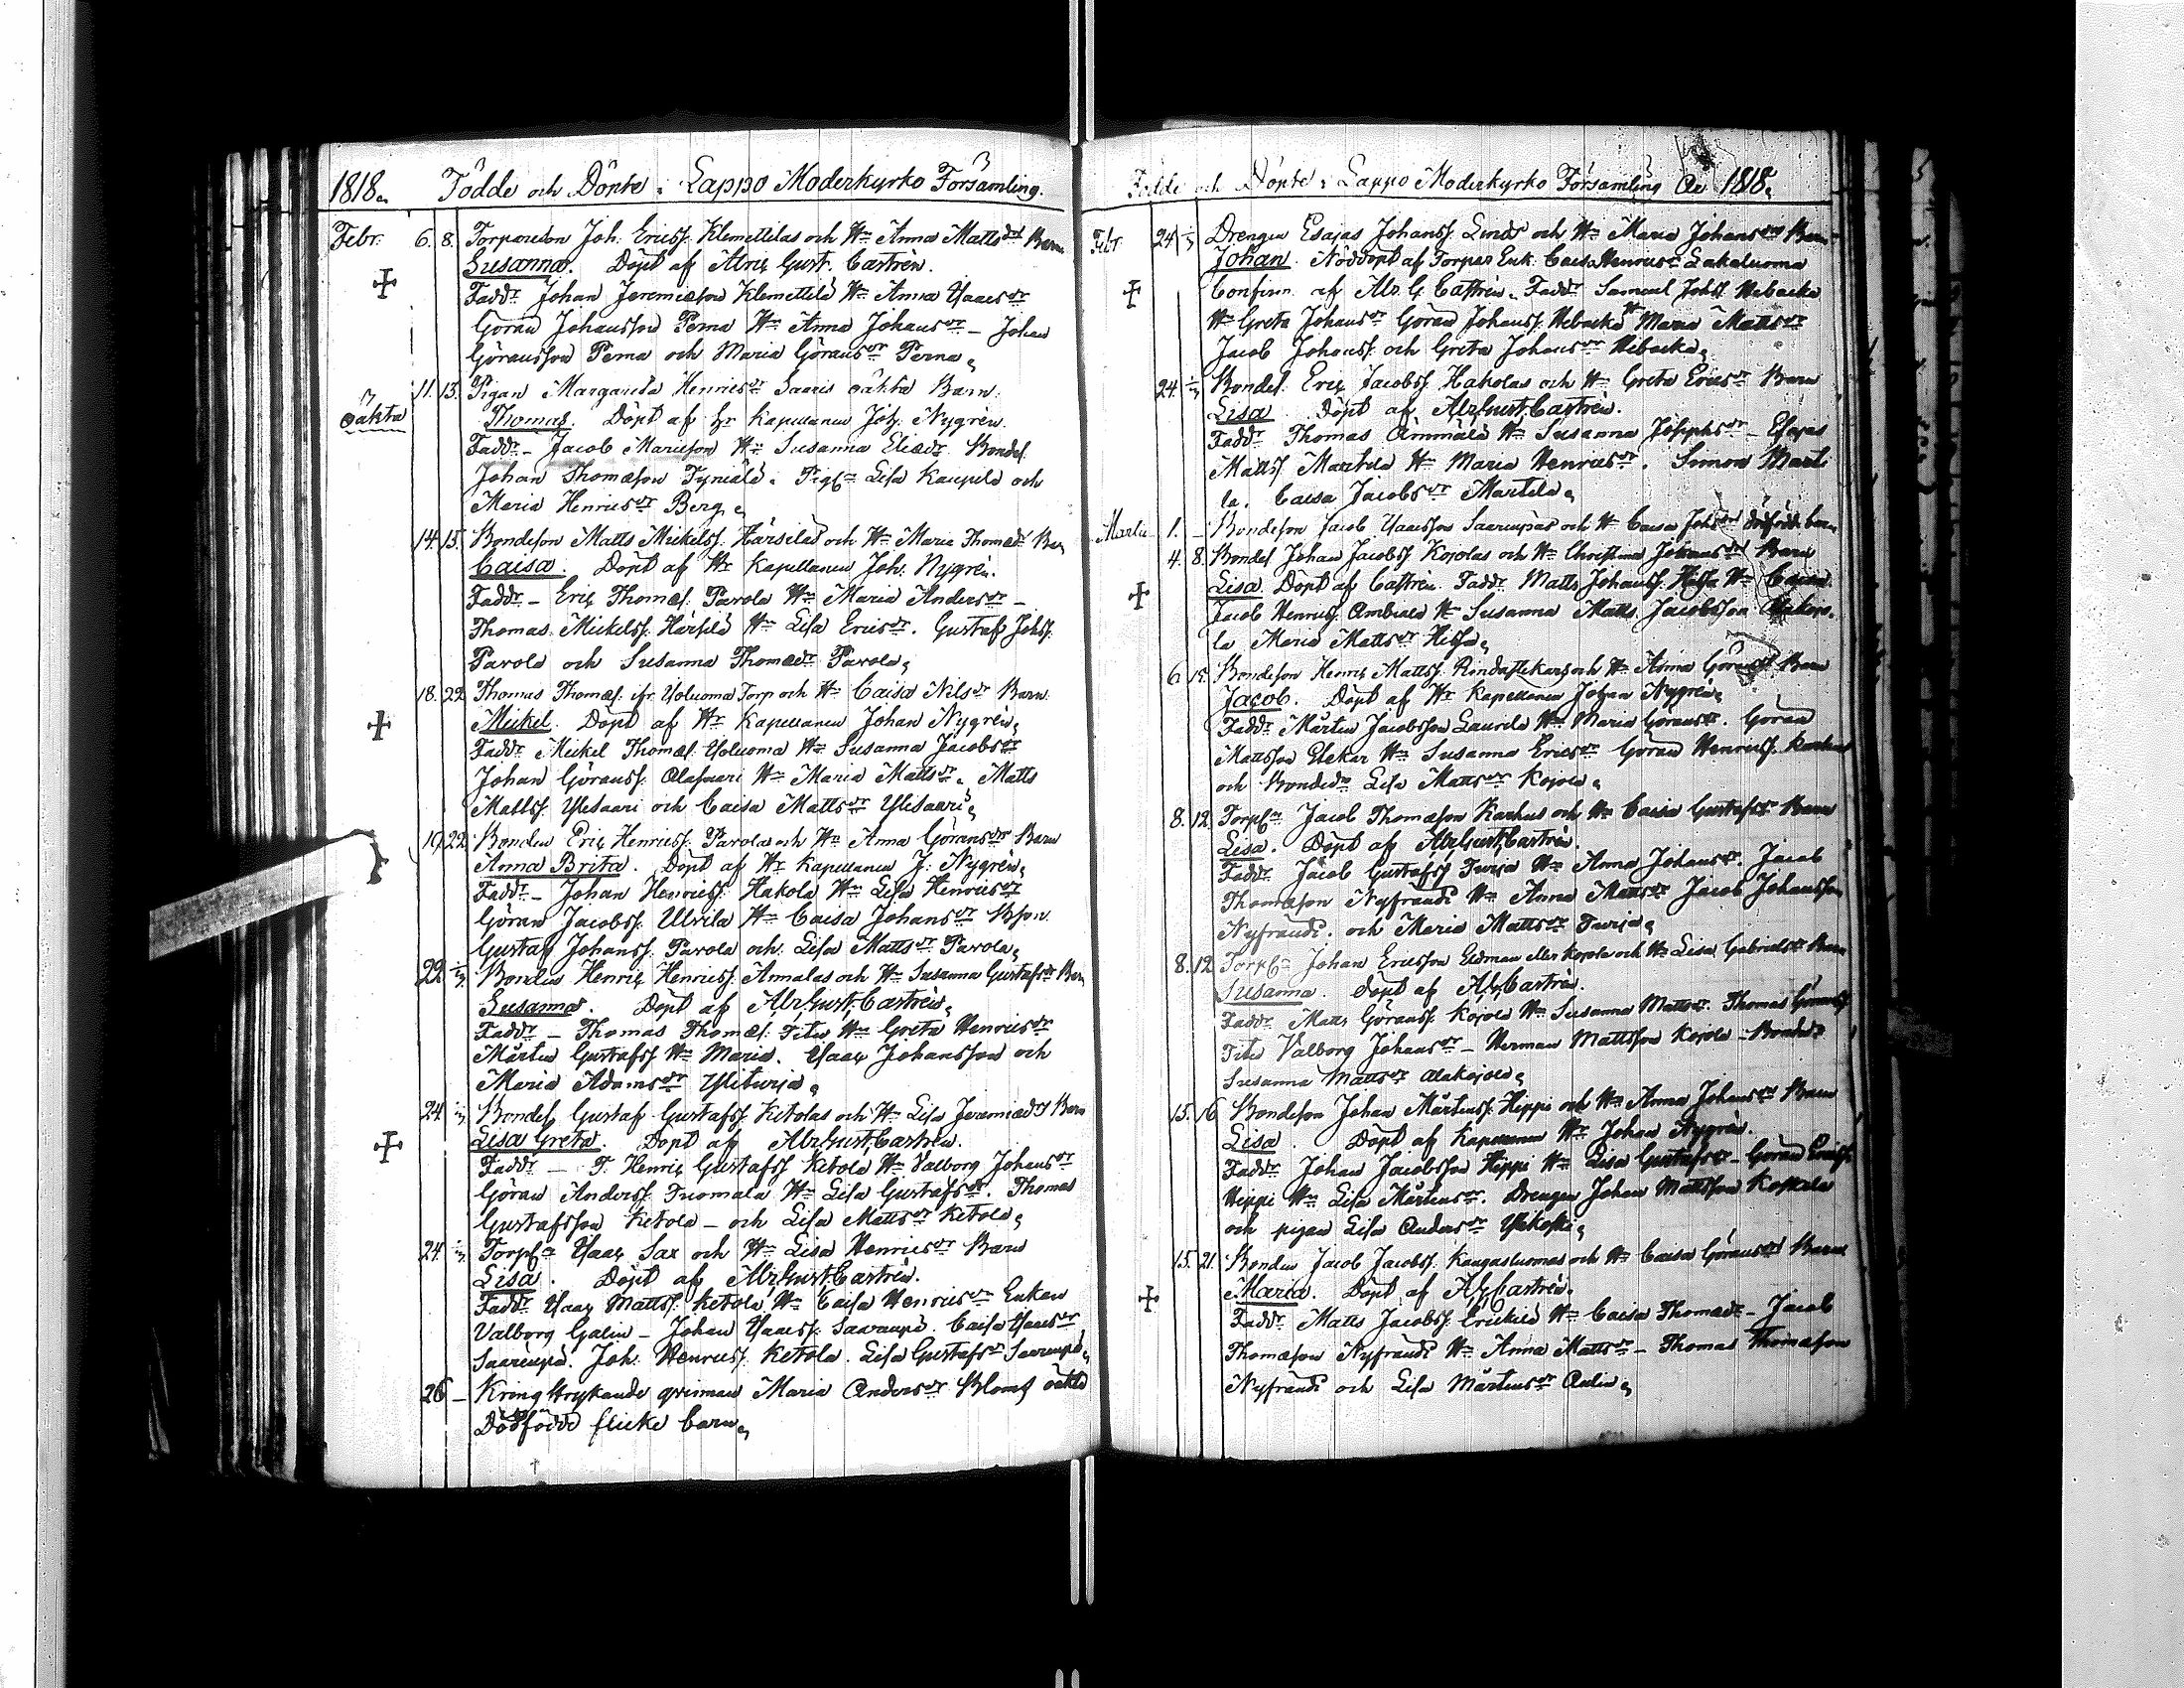 1818. Födde och Döpte i Lappo Moderkyrko Församling.
Febr. 6. 8. Torparedon Joh. Ericss. Klemettilas och Hn Anna Mattsdrs Barn
Susanna. Döpt af Abr. Gust. Castrén.
Faddr Johan Jeremiæson Klemettilä Hn Anna Isaacsdr
Göran Johansson Perna Hn Anna Johansdr – Johan
Göransson Perna och Maria Göransdr Perna,
oäkta 11. 13. Pigan Margareta Henricsdr Saaris oäkta Barn.
Thomas. Döpt af Hr Kapellanen Joh. Nygrén.
Faddr – Jacob Mariæson Hn Susanna Eliædr Bondes.
Johan Thomæson Tyniälä. Pig Lisa Kaupila och
Maria Henricsdr Berg,
14. 15. Bondeson Matts Mickelss. Härsiläs och Hn Maria Thomædrs Barn
Caisa. Döpt af Hr Kapellanen Joh. Nygrén.
Faddr – Eric Thomæs. Pavola Hn Maria Andersdr –
Thomas Mickelss. Härsilä Hn Lisa Ericsdr. Gustaf Johss.
Pavola och Susanna Thomædr Pavola,
18. 22. Thomas Thomæs. ifr. Yoluoma Torp och Hn Caisa Nilsdr Barn
Mickel. Döpt af Hr Kapellanen Johan Nygrén,
Faddr Mickel Thomæs. Yoluoma Hn Susanna Jacobsdr
Johan Göranss. Alasaari Hn Maria Mattsdr. Matts
Mattss. Ylisaari och Caisa Mattsdr Ylisaari,
19. 22. Bonden Eric Henricss. Pavolas och Hn Anna Göransdr Barn
Anna Brita. Döpt af Hr Kapellanen J. Nygrén,
Faddr – Johan Henricss. Hakola Hn Lisa Henricsdr
Göran Jacobss. Ulvila Hn Caisa Johansdr Bson.
Gustaf Johanss. Pavola och Lisa Mattsdr Pavola,
22. Bonden Henric Henricss. Annalas och Hn Susanna Gustafsdr Barn
Susanna. Döpt af Abr. Gust. Castrén,
Faddr – Thomas Thomæs. Titu Hn Greta Henricsdr
Mårten Gustafss Hn Maria. Isaac Johansson och
Maria Adamsdr Ylituria,
24. Bondes. Gustaf Gustafss. Ketolas och Hn Lisa Jeremiædrs Barn
Lisa Greta. Döpt af Abr. Gust. Castrén.
Faddr – T. Henric Gustafss Ketola Hn Valborg Johansdr
Göran Anderss. Tuomala Hn Lisa Gustafsdr. Thomas
Gustafsson Ketola – och Lisa Mattsdr Ketola,
24. Isaac Sax och Hn Lisa Henricsdr Barn
Lisa. Döpt af Abr. Gust. Castrén.
Faddr Isaac Mattss. Ketola Hn Caisa Henricsdr Enkan
Valborg Galin – Johan Isaacss. Saarenpä. Caisa Isaacsdr
Saarenpä. Joh. Henricss. Ketola. Lisa Gustafsdr Saarenpä,
26 – Kring strykande qvinnan Maria Andersdr Bloms oäkta
Dödfödde flicke barn,
Födde och Döpte i Lappo Moderkyrko Församling År 1818.
Febr. 24 Drengen Esajas Johanss. Linds och Hn Maria Johansdrs Barn
Johan. Nöddöpt af Torpar Enk. Caisa Henricsdr Lakaluoma
Confirm. af Abr. G. Castrén. Faddr Samuel Johss Hebacka
Hn Greta Johansdr Göran Johanss. Hebacka Hn Maria Mattsdr
Jacob Johanss. och Greta Johansdr Hebacka,
24. Bondes. Eric Jacobss Hakolas och Hn Greta Ericsdr Barn
Lisa Döpt af Abr. Gust. Castrén.
Faddr Thomas Ämmälä Hn Susanna Josephsdr – Esajas
Mattss. Martila Hn Maria Henricsdr. Simon Marti
la. Caisa Jacobsdr Martila,
Martii 1. – Bondeson Jacob Isaacsson Saarenpäs och Hn Caisa Johsdrs dödfödde barn
4. 8. Bondes Johan Jacobss Kojolas och Hn Christina Johansdrs Barn
Lisa. Döpt af Castrén. Faddr Matts Johanss. Hissa Hn Caisa
Jacob Henricss. Ämbiälä Hn Susanna Matts Jacobsson
la Maria Mattsdr Hissa,
6. 15. Bondeson Henric Mattss. och Hn Anna Göransdr Barn
Jacob. Döpt af Hr Kapellanen Johan Nygrén,
Faddr Mårten Jacobsson Laurila Hn Maria Göransdr. Göran
Mattsson Hn Susanna Ericsdr Göran Henricss. Karhus
och Bondedr Lisa Mattsdr Kojola,
8. 12. Jacob Thomæson Karhus och Hn Caisa Gustafsdr Barn
Lisa. Döpt af Abr. Gust. Castrén.
Faddr Jacob Gustafss Turja Hn Anna Johansdr. Jacob
Thomæson Nyfrandi Hn Anna Mattsdr Jacob Johansson
Nyfrandi. och Maria Mattsdr Turja,
8. 12 Johan Ericsson Erdman eller Kojola och Hn Lisa Gabrielsdr Barn
Susanna. Döpt af Abr. Castrén.
Faddr Matts Göranss. Kojola Hn Susanna Mattsdr. Thomas Göranss
Titu Valborg Johansdr – Herman Mattsson Kojola – Bondedr
Susanna Mattsdr Alakojola,
15. 16 Bondeson Johan Mårtenss. Hippi och Hn Anna Johansdrs Barn
Lisa. Döpt af Kapellanen Hr Johan Nygrén.
Faddr Johan Jacobsson Hippi Hn Lisa Gustafsdr – Göran Ericss.
Hippi Hn Lisa Mårtensdr. Drengen Johan Mattsson Koskela
och pigan Lisa Andersdr Ylikoski,
15. 21. Bonden Jacob Jacobss. Kangasluomas och Hn Caisa Göransdrs Barn
Maria. Döpt af Abr. Castrén.
Faddr Matts Jacobss. Erickilä Hn Caisa Thomædr – Jacob
Thomæson Nyfrandi Hn Anna Mattsdr – Thomas Thomæson
Nyfrandi och Lisa Mårtensdr Anlin,